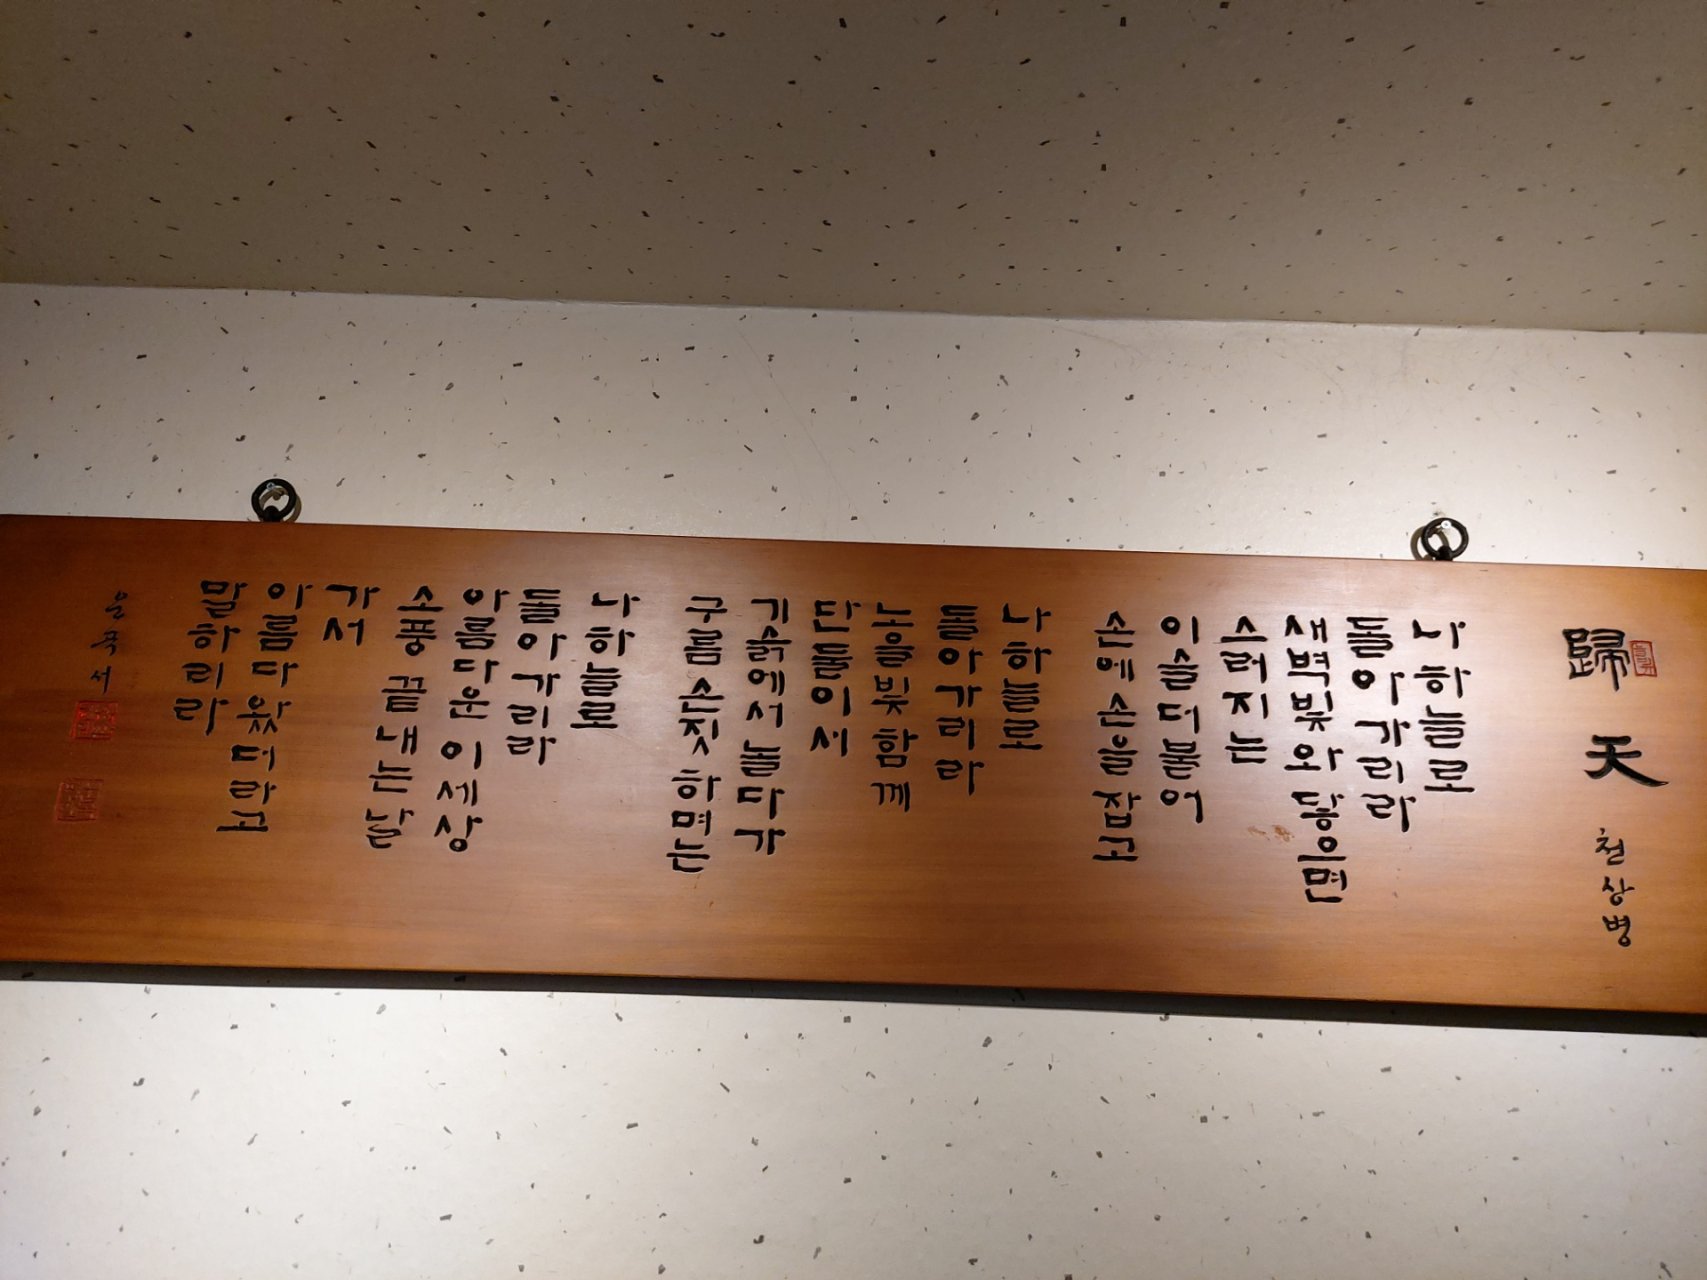 歸天 천상병
나 하늘로
돌아가리라
새벽빛와 닿으면
스러지는
이슬 더불어
손에 손을 잡고
나 하늘로
돌아가리라
노을빛 함께
단 둘이서
기슭에서 놀다가
구름 손짓하며는
나 하늘로
돌아가리라
아름다운 이 세상
소풍 끝내는 날
가서
아름다왔더라고
말하리라